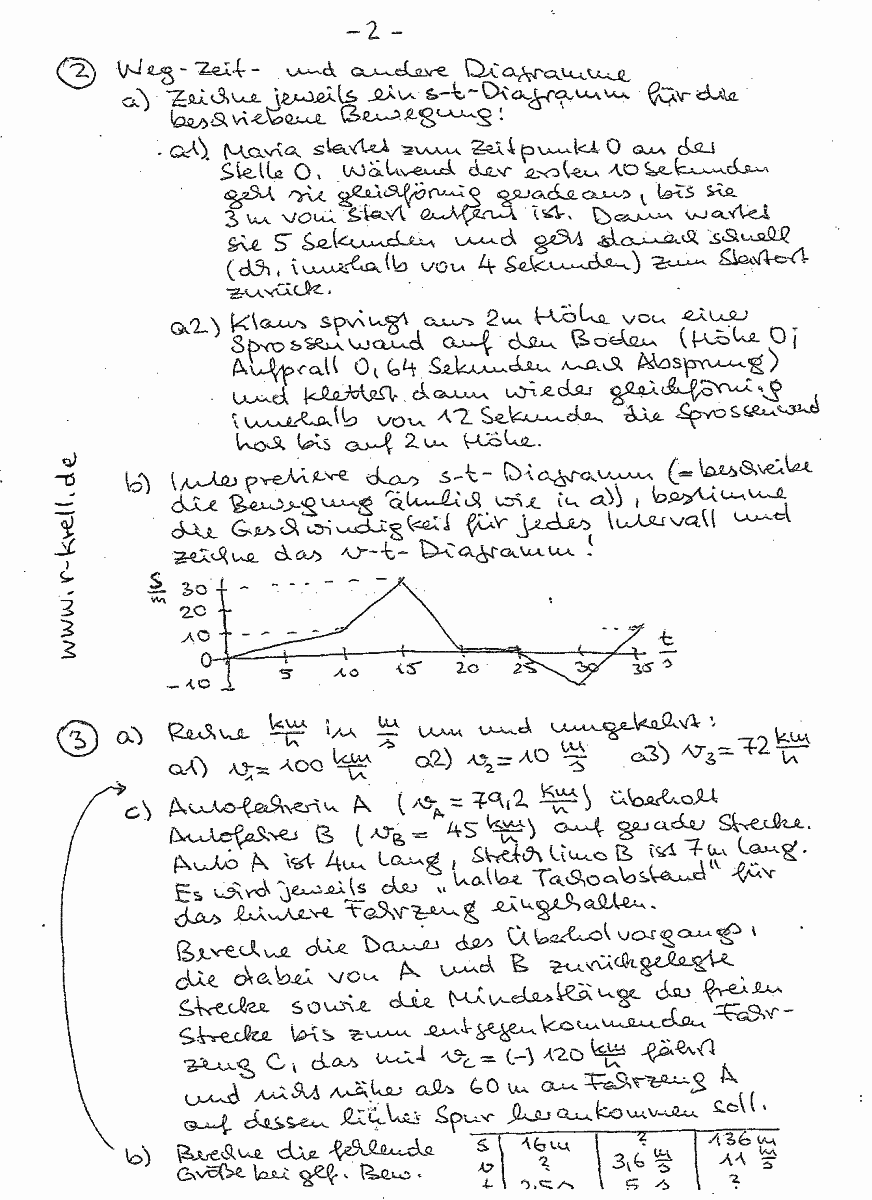 - 2 -
② Weg-Zeit- und andere Diagramme
a) Zeichne jeweils ein s-t-Diagramm für die
beschriebene Bewegung!
a1) Maria startet zum Zeitpunkt 0 an der
Stelle 0. Während der ersten 10 Sekunden
geht sie gleichförmig geradeaus, bis sie
3 m vom Start entfernt ist. Dann wartet
sie 5 Sekunden und geht danach schnell
(d.h. innerhalb von 4 Sekunden) zum Startort
zurück.
a2) Klaus springt aus 2m Höhe von einer
Sprossenwand auf den Boden (Höhe 0;
Aufprall 0,64 Sekunden nach Absprung)
und klettert dann wieder gleichförmig
innerhalb von 12 Sekunden die Sprossenwand
hoch bis auf 2m Höhe.
b) Interpretiere das s-t-Diagramm (=beschreibe
die Bewegung ähnlich wie in a)), bestimme
die Geschwindigkeit für jedes Intervall und
zeichne das v-t-Diagramm!
www.r-krell.de
s/m
30
20
10
0
-10
5 10 15 20 25 30 35
t/s
③ a) Rechne km/h in m/s um und umgekehrt:
a1) v₁= 100 km/h a2) v₂= 10 m/s a3) v₃= 72 km/h
c) Autofahrerin A (v_A = 79,2 km/h) überholt
Autofahrer B (v_B = 45 km/h) auf gerader Strecke.
Auto A ist 4m lang, Stretchlimo B ist 7m lang.
Es wird jeweils der „halbe Tachoabstand" für
das hintere Fahrzeug eingehalten.
Berechne die Dauer des Überholvorgangs,
die dabei von A und B zurückgelegte
Strecke sowie die Mindestlänge der freien
Strecke bis zum entgegenkommenden Fahr-
zeug C, das mit v_C = (-) 120 km/h fährt
und nicht näher als 60 m an Fahrzeug A
auf dessen linker Spur herankommen soll.
b) Berechne die fehlende
Größe bei glf. Bew.
s 16m ? 136 m
v ? 3,6 m/s 11 m/s
t 2,5s 5 s ?